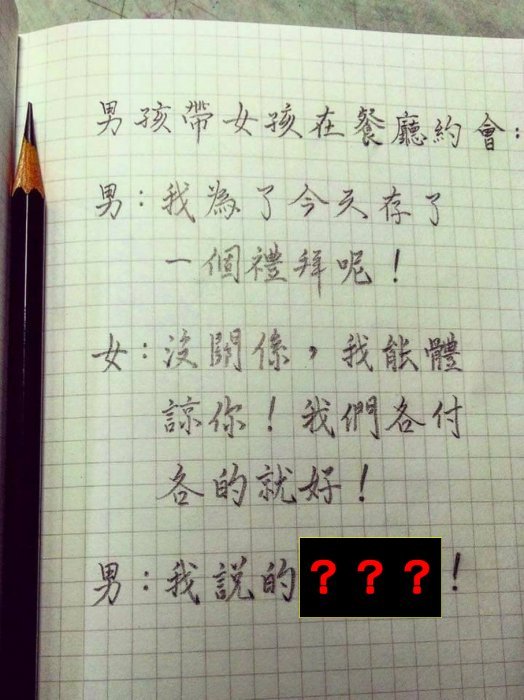 男孩帶女孩在餐廳約會：
男：我為了今天存了
一個禮拜呢！
女：沒關係，我能體
諒你！我們各付
各的就好！
男：我説的？？？！